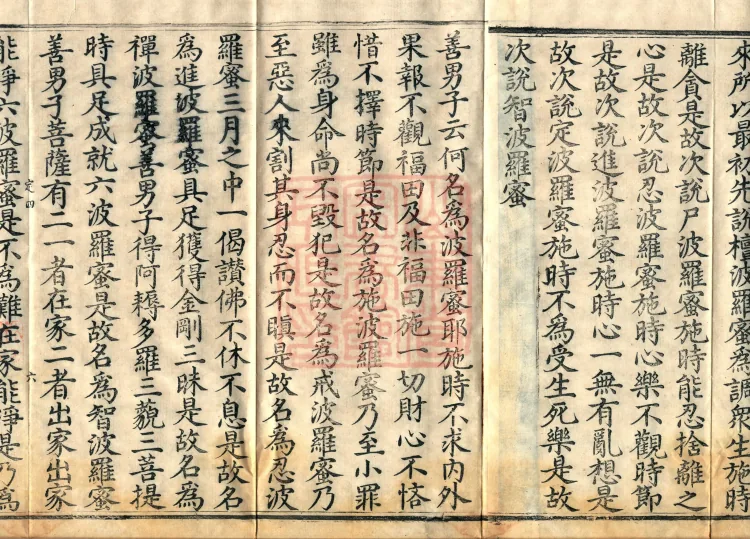 來所以最初先說檀波羅蜜為調衆生施時
離貪是故次說尸波羅蜜施時能忍捨離之
心是故次說忍波羅蜜施時心樂不觀時節
是故次說進波羅蜜施時心一無有亂想是
故次說定波羅蜜施時不為受生死樂是故
次說智波羅蜜
善男子云何名為波羅蜜耶施時不求內外
果報不觀福田及非福田施一切財心不悋
惜不擇時節是故名為施波羅蜜乃至小罪
雖為身命尚不毀犯是故名為戒波羅蜜乃
至惡人來割其身忍而不瞋是故名為忍波
羅蜜三月之中一偈讃佛不休不息是故名
為進波羅蜜具足獲得金剛三昧是故名為
禪波羅蜜善男子得阿耨多羅三藐三菩提
時具足成就六波羅蜜是故名為智波羅蜜
善男子菩薩有二一者在家二者出家出家
定四
六
能淨六波羅蜜是不為難在家能淨是乃為